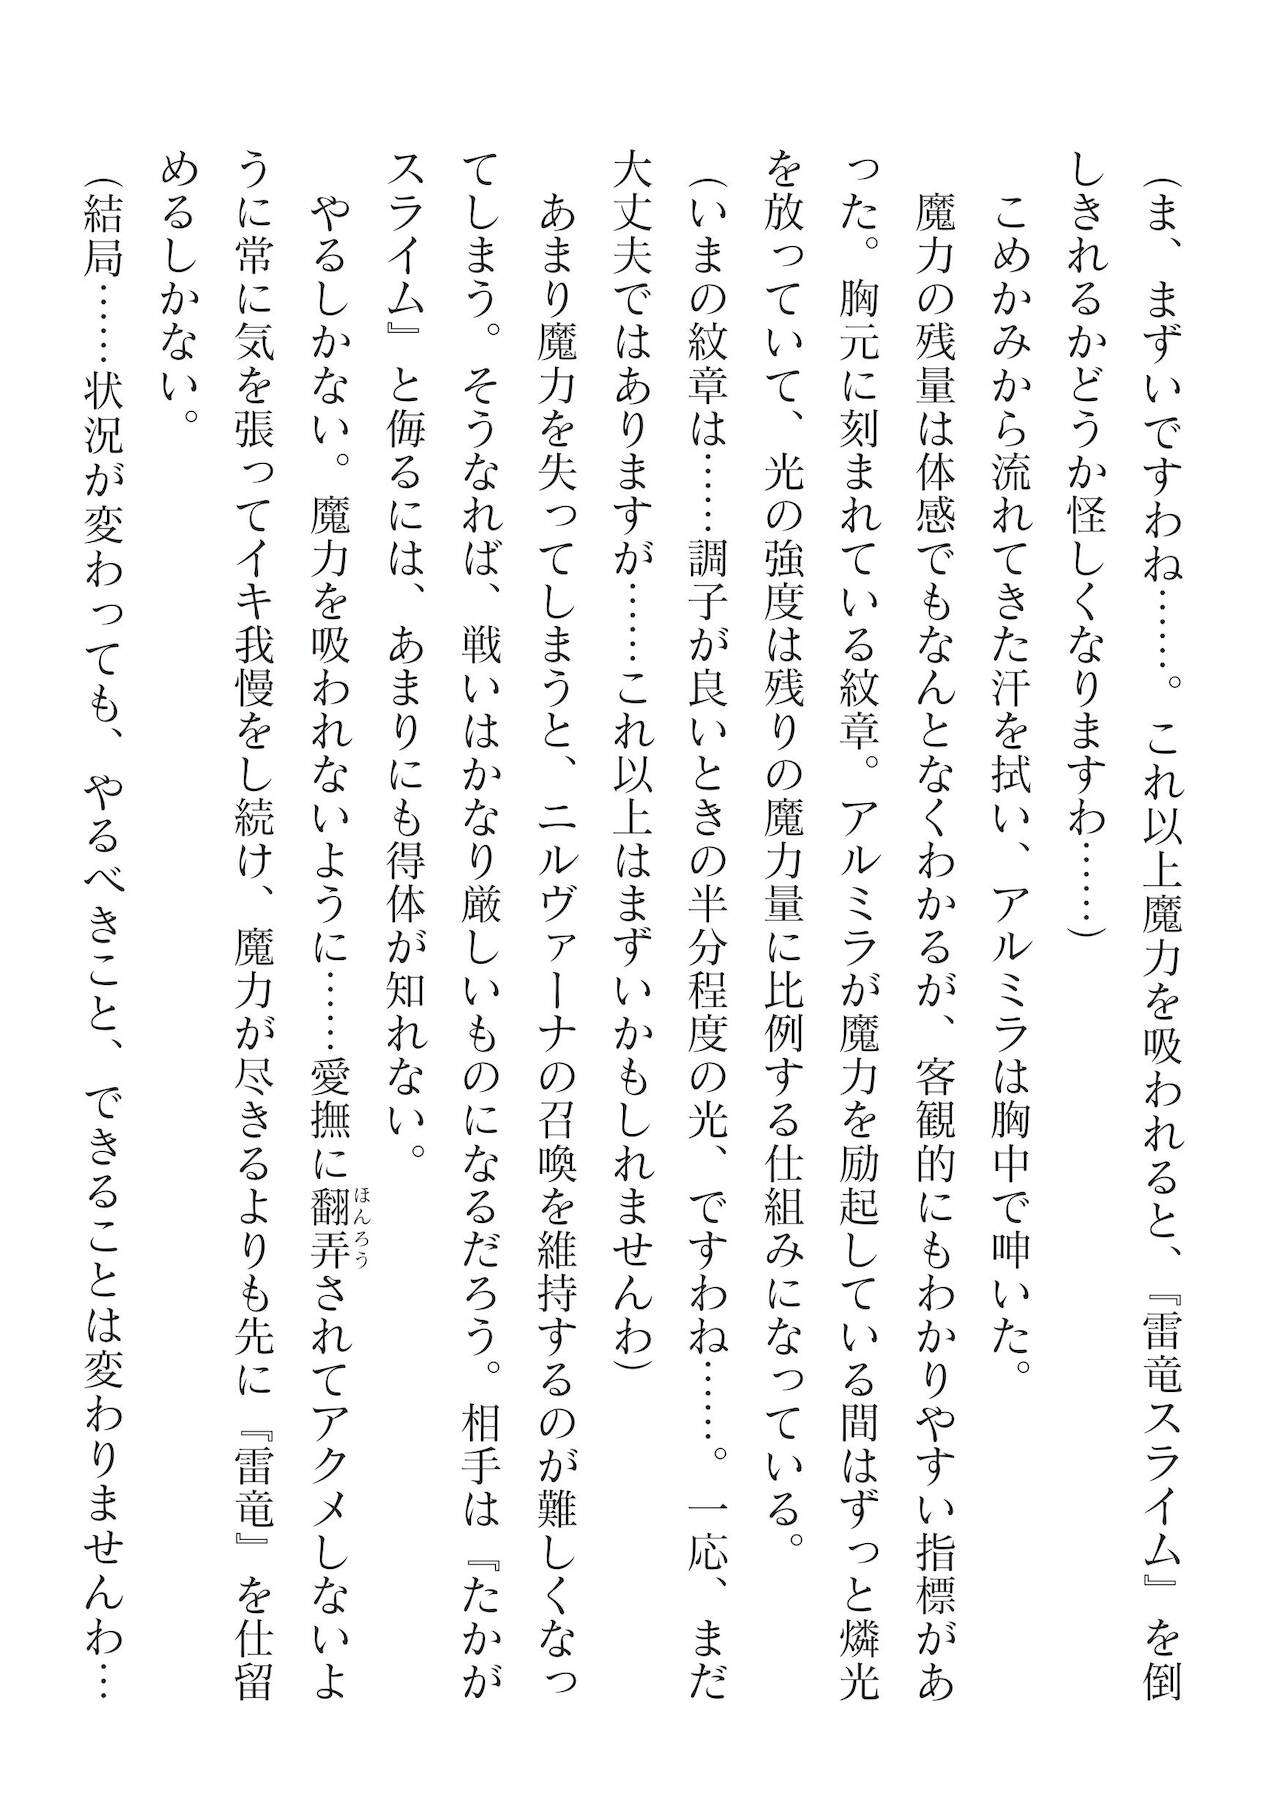 （ま、まずいですわね……。これ以上魔力を吸われると、『雷竜スライム』を倒
しきれるかどうか怪しくなりますわ……）
こめかみから流れてきた汗を拭い、アルミラは胸中で呻いた。
魔力の残量は体感でもなんとなくわかるが、客観的にもわかりやすい指標があ
った。胸元に刻まれている紋章。アルミラが魔力を励起している間はずっと燐光
を放っていて、光の強度は残りの魔力量に比例する仕組みになっている。
（いまの紋章は……調子が良いときの半分程度の光、ですわね……。一応、まだ
大丈夫ではありますが……これ以上はまずいかもしれませんわ）
あまり魔力を失ってしまうと、ニルヴァーナの召喚を維持するのが難しくなっ
てしまう。そうなれば、戦いはかなり厳しいものになるだろう。相手は『たかが
スライム』と侮るには、あまりにも得体が知れない。
やるしかない。魔力を吸われないように……愛撫に翻弄されてアクメしないよ
ほんろう
うに常に気を張ってイキ我慢をし続け、魔力が尽きるよりも先に『雷竜』を仕留
めるしかない。
（結局……状況が変わっても、やるべきこと、できることは変わりませんわ…